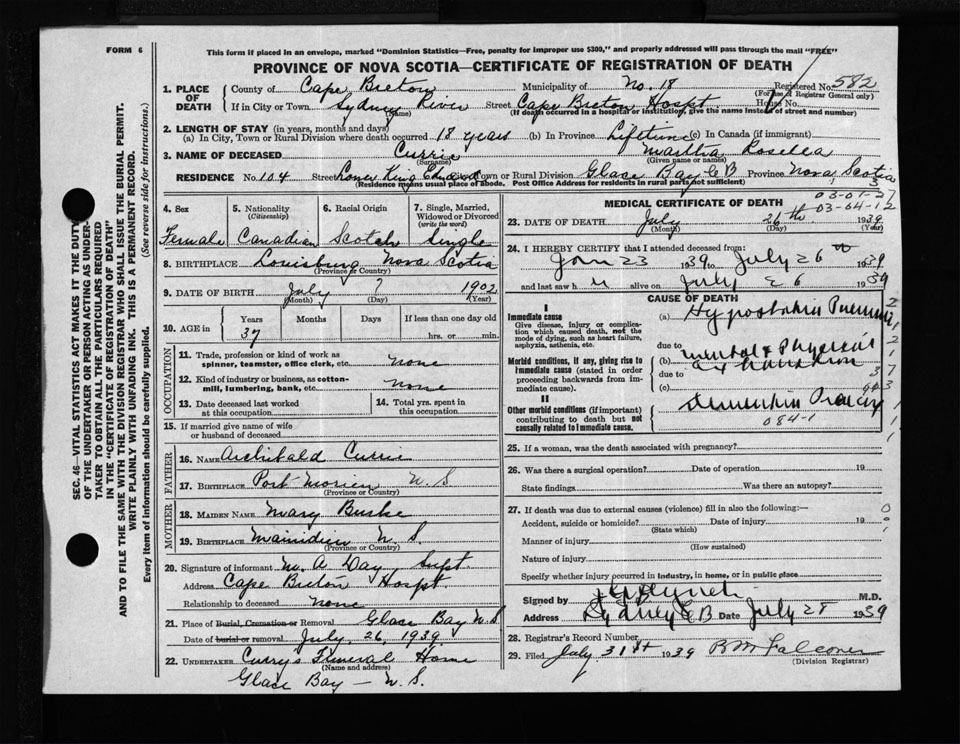 FORM 6
This form if placed in an envelope, marked "Dominion Statistics—Free, penalty for improper use $300," and properly addressed will pass through the mail "FREE"
PROVINCE OF NOVA SCOTIA—CERTIFICATE OF REGISTRATION OF DEATH
1. PLACE OF DEATH
County of Cape Breton Municipality of No. 18 Registered No. 582
(For use of Registrar General only)
If in City or Town Sydney River Street Cape Breton Hospt. House No.
(Name) (If death occurred in a hospital or institution, give the name instead of street and number)
2. LENGTH OF STAY (in years, months and days)
(a) In City, Town or Rural Division where death occurred 18 years (b) In Province Lifetime (c) In Canada (if immigrant)
3. NAME OF DECEASED Currie Martha Rosella
(Surname) (Given name or names)
RESIDENCE No. 104 Street Town or Rural Division Glace Bay CB Province Nova Scotia
(Residence means usual place of abode. Post Office Address for residents in rural parts not sufficient)
4. Sex 5. Nationality (Citizenship) 6. Racial Origin 7. Single, Married, Widowed or Divorced (write the word)
Female Canadian Scotch Single
8. BIRTHPLACE Louisburg Nova Scotia
(Province or Country)
9. DATE OF BIRTH July ? 1902
(Month) (Day) (Year)
10. AGE in Years Months Days If less than one day
37 hrs. or min.
11. Trade, profession or kind of work as spinner, teamster, office clerk, etc. none
12. Kind of industry or business, as cotton-mill, lumbering, bank, etc. none
13. Date deceased last worked at this occupation
14. Total yrs. spent in this occupation
15. If married give name of wife or husband of deceased
FATHER
16. NAME Archibald Currie
17. BIRTHPLACE Port Morien N.S
(Province or Country)
MOTHER
18. MAIDEN NAME Mary Burke
19. BIRTHPLACE Mainidieu N.S.
(Province or Country)
20. Signature of informant M. A Day Supt.
Address Cape Breton Hospt.
Relationship to deceased none
21. Place of Burial, Cremation or Removal Glace Bay N.S
Date of burial or removal July, 26, 1939
22. UNDERTAKER Curry's Funeral Home
(Name and address)
Glace Bay — N.S.
MEDICAL CERTIFICATE OF DEATH
03-04-12
23. DATE OF DEATH July 26th 1939
(Month) (Day) (Year)
24. I HEREBY CERTIFY that I attended deceased from:
Jan 23 1939 to July 26 1939
and last saw h alive on July 26 1939
CAUSE OF DEATH
I
Immediate cause
Give disease, injury or complication which caused death, not the mode of dying, such as heart failure, asphyxia, asthenia, etc.
(a)
due to
Morbid conditions, if any, giving rise to immediate cause (stated in order proceeding backwards from immediate cause).
(b) Mental & Physical
due to
(c)
II
Other morbid conditions (if important) contributing to death but not causally related to immediate cause.
084-1
25. If a woman, was the death associated with pregnancy?
26. Was there a surgical operation? Date of operation 19
State findings Was there an autopsy?
27. If death was due to external causes (violence) fill in also the following:—
Accident, suicide or homicide? Date of injury 19
(State which)
Manner of injury
(How sustained)
Nature of injury
Specify whether injury occurred in industry, in home, or in public place
Signed by M.D.
Address Sydney CB Date July 28 1939
28. Registrar's Record Number
29. Filed July 31st 1939 B M Falconer
(Division Registrar)
SEC. 46—VITAL STATISTICS ACT MAKES IT THE DUTY
OF THE UNDERTAKER OR PERSON ACTING AS UNDER-
TAKER TO OBTAIN ALL THE PARTICULARS REQUIRED
IN THE "CERTIFICATE OF REGISTRATION OF DEATH"
AND TO FILE THE SAME WITH THE DIVISION REGISTRAR WHO SHALL ISSUE THE BURIAL PERMIT.
WRITE PLAINLY WITH UNFADING INK. THIS IS A PERMANENT RECORD.
Every item of information should be carefully supplied. (See reverse side for instructions.)